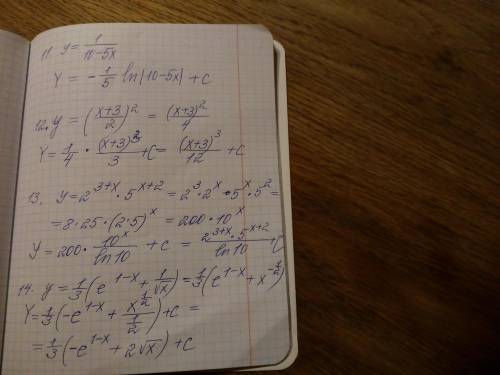 11. y = 1/(10-5x)
Y = -1/5 ln|10-5x| + C
12. y = ((x+3)/2)² = (x+3)²/4
Y = 1/4 · (x+3)³/3 + C = (x+3)³/12 + C
13. y = 2^(3+x) · 5^(x+2) = 2³ · 2^x · 5^x · 5² =
= 8 · 25 · (2·5)^x = 200 · 10^x
Y = 200 · 10^x/ln10 + C = 2^(3+x) · 5^(x+2)/ln10 + C
14. y = 1/3 (e^(1-x) + 1/√x) = 1/3 (e^(1-x) + x^(-1/2))
Y = 1/3 (-e^(1-x) + x^(1/2)/(1/2)) + C =
= 1/3 (-e^(1-x) + 2√x) + C